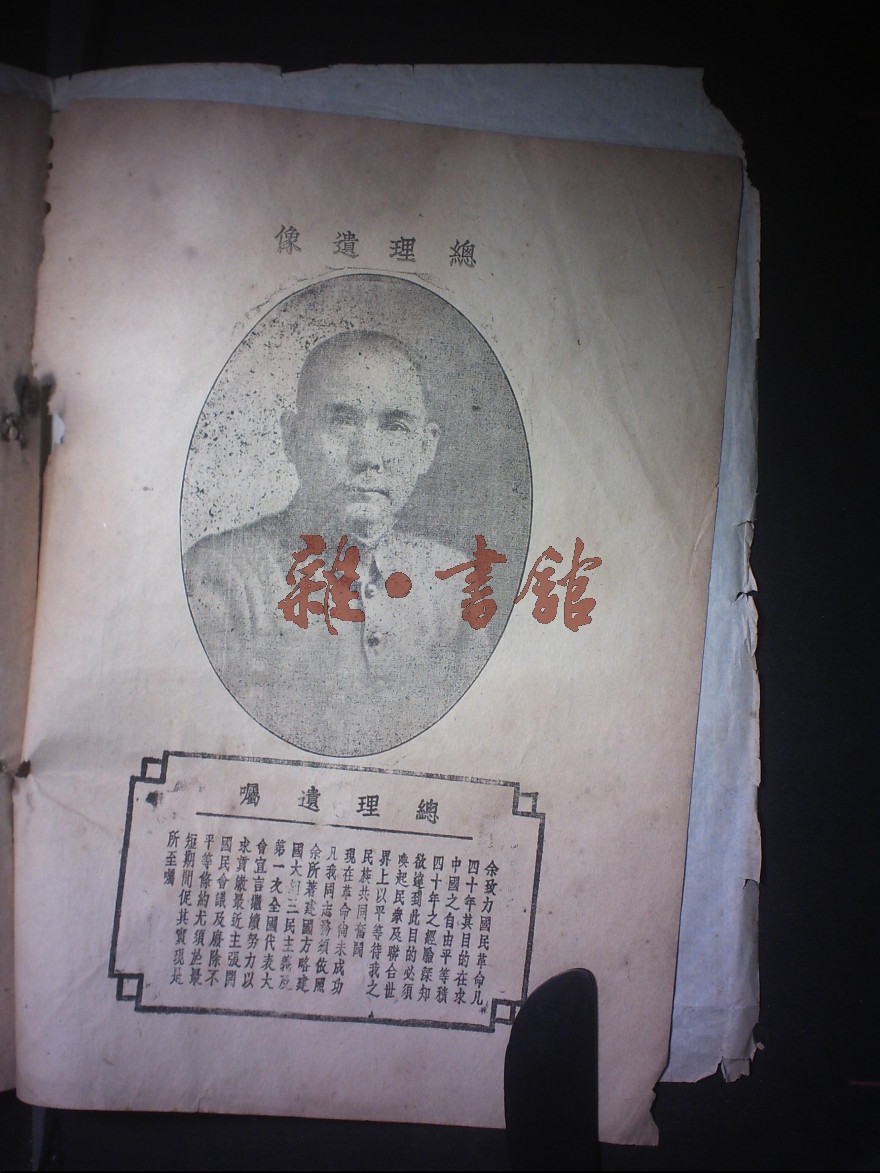 總理遺像
雜·書館
總理遺囑
余致力國民革命凡
四十年其目的在求
中國之自由平等積
四十年之經驗深知
欲達到此目的必須
喚起民衆及聯合世
界上以平等待我之
民族共同奮鬪
現在革命尚未成功
凡我同志務須依照
余所著建國方略建
國大綱三民主義及
第一次全國代表大
會宣言繼續努力以
求貫徹最近主張開
國民會議及廢除不
平等條約尤須於最
短期間促其實現是
所至囑